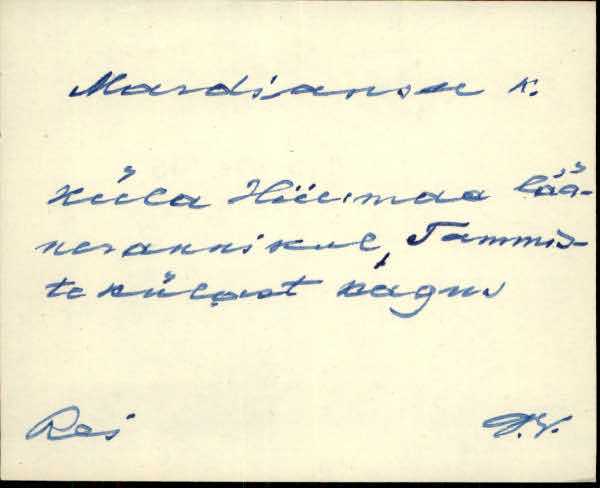 Mardiansu k.
Küla Hiiumaa lää-
nerannikul, Tammis-
te külast kagus
Rei